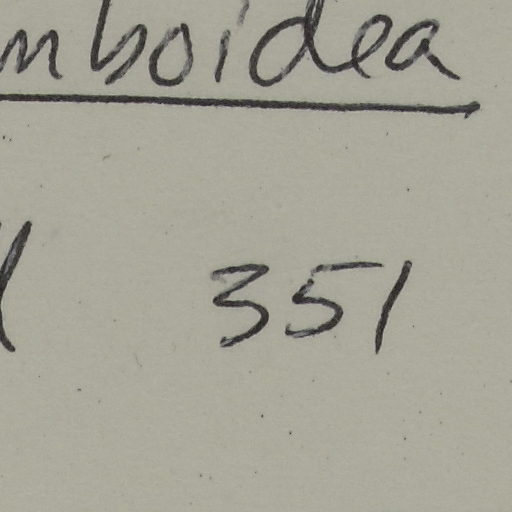 mboidea
351